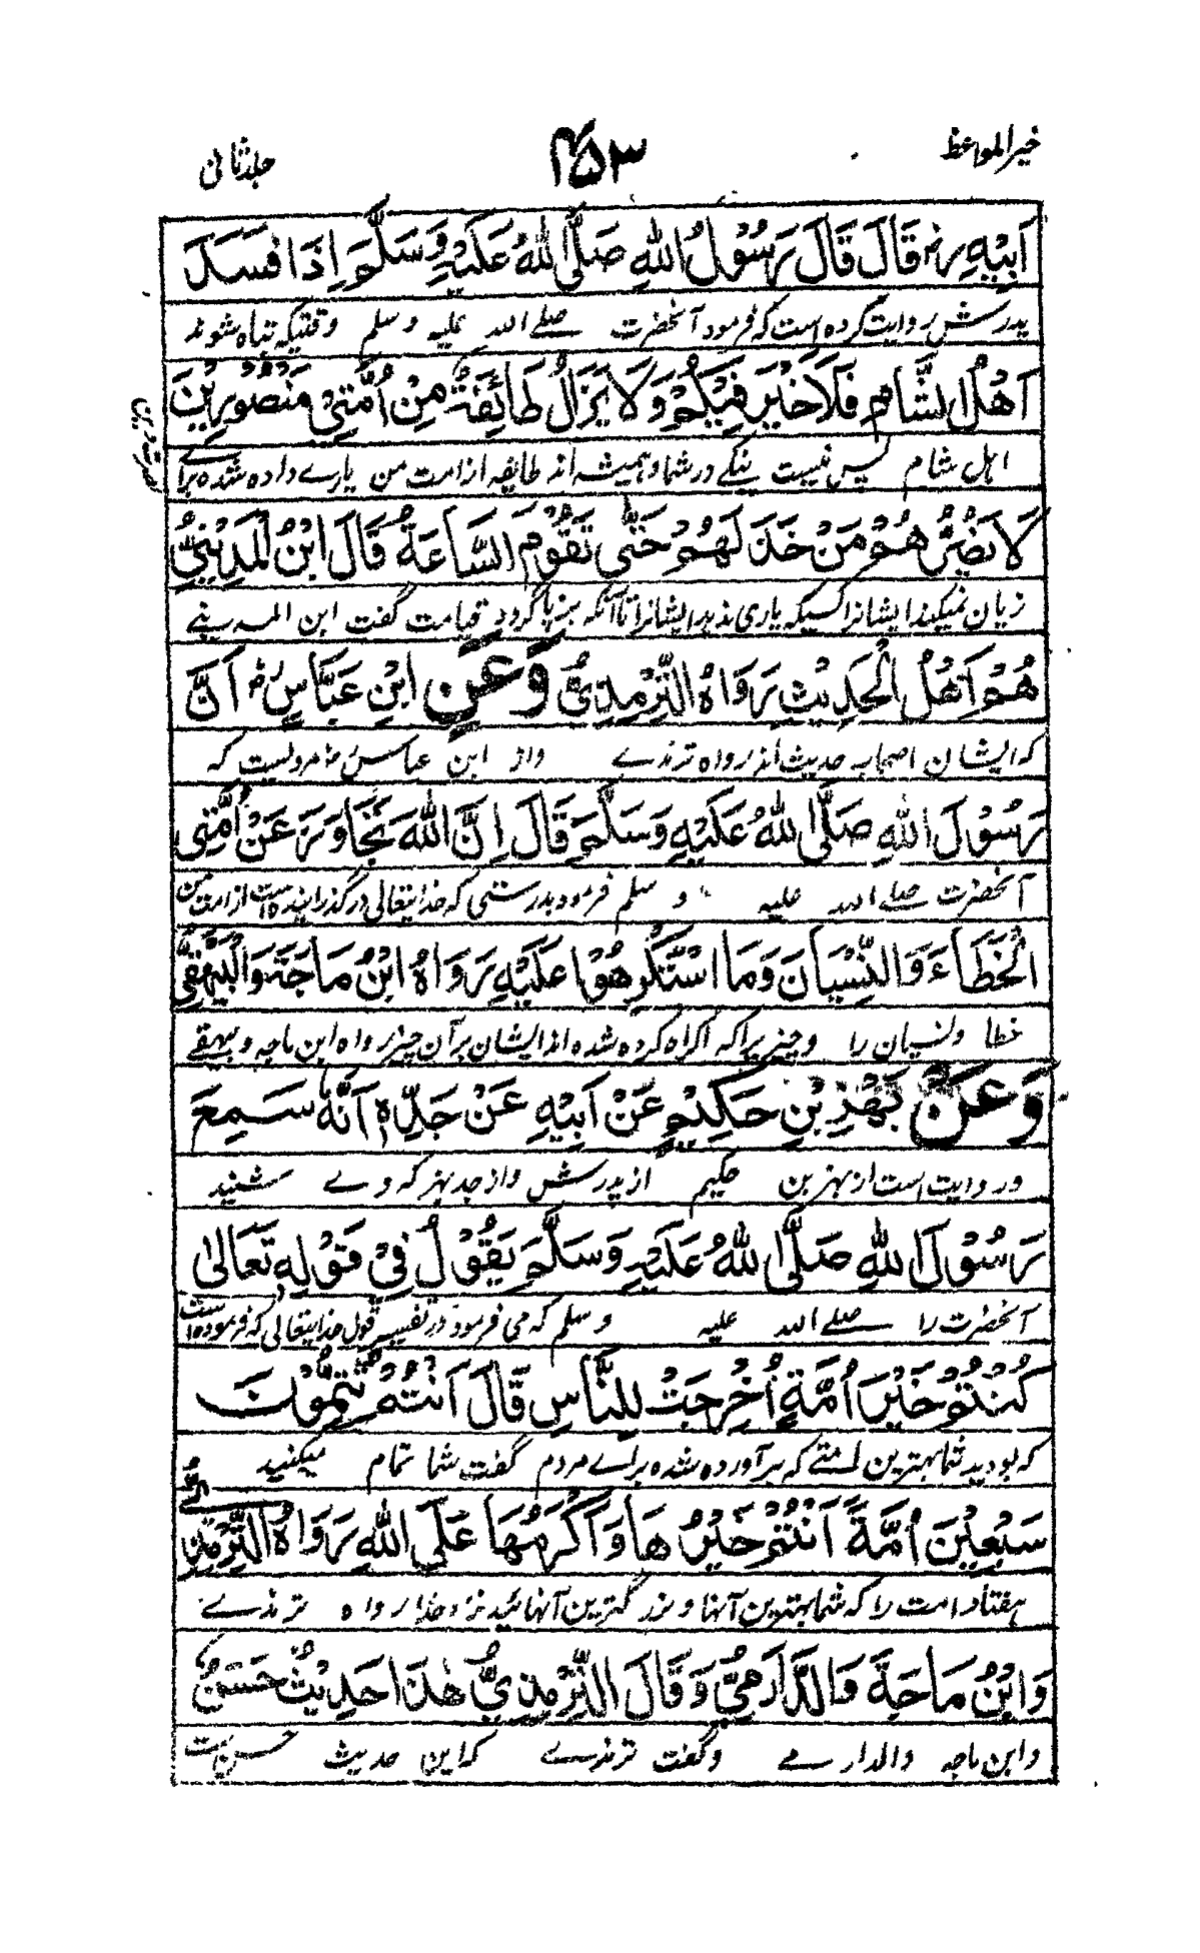 خیر المواعظ
۴۵۳
جلد ثانی
اَبِيْهِ رض قَالَ قَالَ رَسُوْلُ اللهِ صَلَّى اللهُ عَلَيْهِ وَسَلَّمَ اِذَا فَسَدَ
پدرش روایت کرده است که فرمود آنحضرت صلے الله علیه وسلم وقتیکه تباه شوند
اَهْلُ الشَّامِ فَلَا خَيْرَ فِيْكُمْ وَلَا يَزَالُ طَائِفَةٌ مِنْ اُمَّتِيْ مَنْصُوْرِيْنَ
اہل شام پس نیست نیکے در شما و ہمیشه اند طایفه از امت من یارے داده شده براے
لَا يَضُرُّهُمْ مَنْ خَذَلَهُمْ حَتّٰى تَقُوْمَ السَّاعَةُ قَالَ ابْنُ الْمَدِيْنِيِّ
زیان نمیکند ایشانرا کسیکه یاری ندہد ایشانرا تا آنکه برپا گردد قیامت گفت ابن المدینے
هُمْ اَهْلُ الْحَدِيْثِ رَوَاهُ التِّرْمِذِيُّ وَعَنِ ابْنِ عَبَّاسٍ رض اَنَّ
که ایشان اصحاب حدیث اند رواه ترمذے واز ابن عباس رض مرویست که
رَسُوْلَ اللهِ صَلَّى اللهُ عَلَيْهِ وَسَلَّمَ قَالَ اِنَّ اللهَ تَجَاوَزَ عَنْ اُمَّتِيْ
آنحضرت صلے الله علیه وسلم فرمود بدرستی که خدایتعالی درگذرانیده است از امت من
الْخَطَاءَ وَالنِّسْيَانَ وَمَا اسْتُكْرِهُوْا عَلَيْهِ رَوَاهُ ابْنُ مَاجَةَ وَالْبَيْهَقِيُّ
خطا ونسیان را وچیزیرا که اکراه کرده شده اند ایشان برآن چیز رواه ابن ماجه وبیہقے
وَعَنْ بَهْزِ بْنِ حَكِيْمٍ عَنْ اَبِيْهِ عَنْ جَدِّهٖ اَنَّهٗ سَمِعَ
وروایت است از بہز بن حکیم از پدرش واز جد بہز که وے شنید
رَسُوْلَ اللهِ صَلَّى اللهُ عَلَيْهِ وَسَلَّمَ يَقُوْلُ فِيْ قَوْلِهٖ تَعَالٰى
آنحضرت را صلے الله علیه وسلم که می فرمود در تفسیر قول خدایتعالی که فرموده است
كُنْتُمْ خَيْرَ اُمَّةٍ اُخْرِجَتْ لِلنَّاسِ قَالَ اَنْتُمْ تُتِمُّوْنَ
که بودید شما بہترین امتے که برآورده شده براے مردم گفت شما تمام میکنید
سَبْعِيْنَ اُمَّةً اَنْتُمْ خَيْرُهَا وَاَكْرَمُهَا عَلَى اللهِ رَوَاهُ التِّرْمِذِيُّ
ہفتاد امت را که شما بہترین آنہا وبزرگترین آنہائید نزد خدا رواه ترمذے
وَابْنُ مَاجَةَ وَالدَّارَمِيُّ وَقَالَ التِّرْمِذِيُّ هٰذَا حَدِيْثٌ حَسَنٌ
وابن ماجه والدارمے وگفت ترمذے که این حدیث حسن است